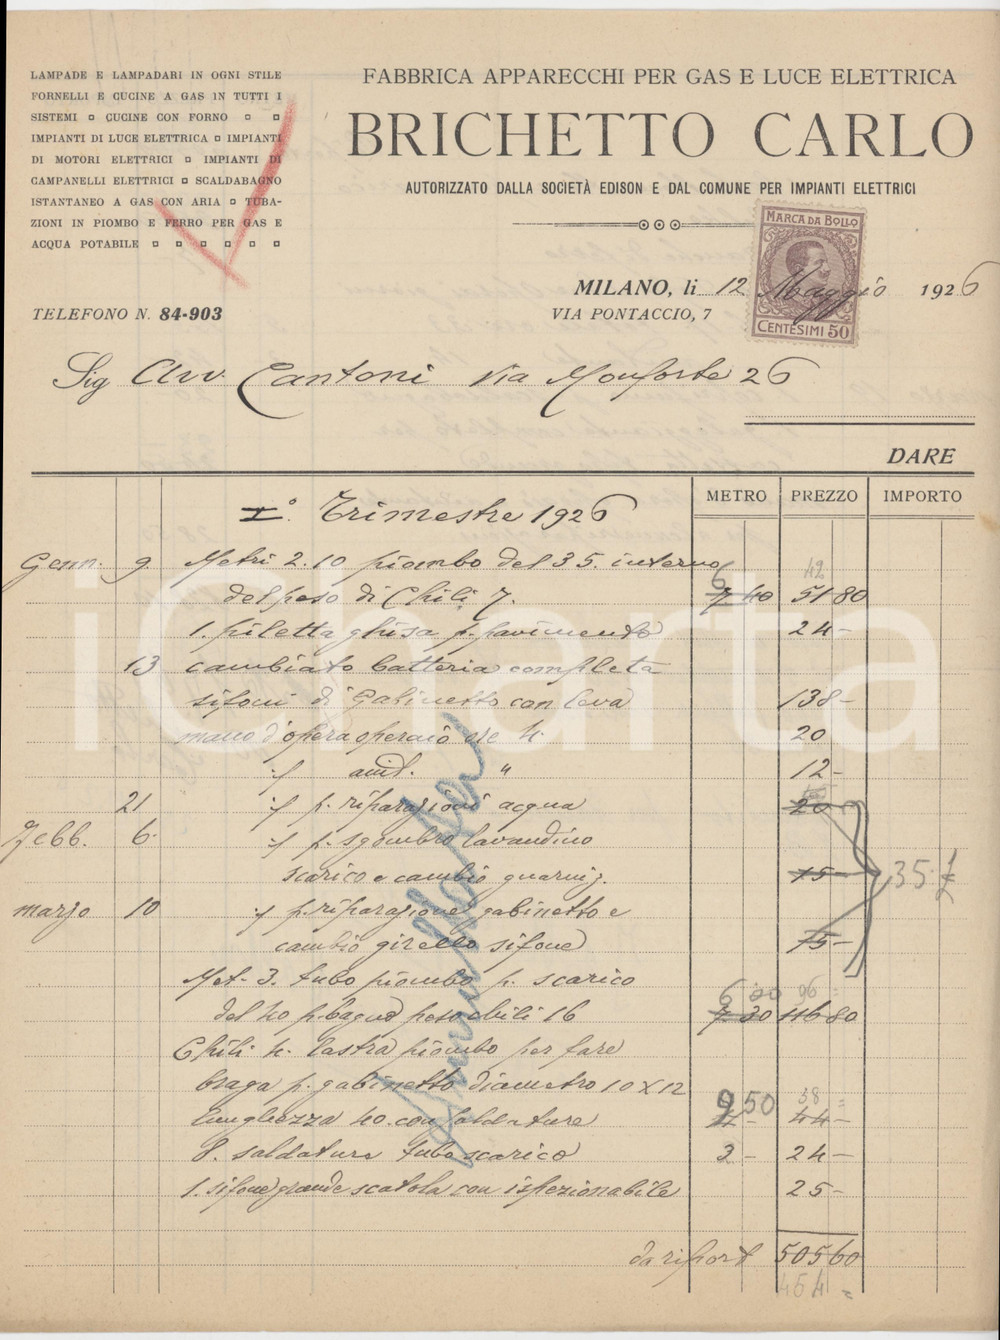 LAMPADE E LAMPADARI IN OGNI STILE
FORNELLI E CUCINE A GAS IN TUTTI I
SISTEMI ¤ CUCINE CON FORNO ¤ ¤
IMPIANTI DI LUCE ELETTRICA ¤ IMPIANTI
DI MOTORI ELETTRICI ¤ IMPIANTI DI
CAMPANELLI ELETTRICI ¤ SCALDABAGNO
ISTANTANEO A GAS CON ARIA ¤ TUBA-
ZIONI IN PIOMBO E FERRO PER GAS E
ACQUA POTABILE ¤ ¤ ¤ ¤ ¤ ¤
TELEFONO N. 84-903
FABBRICA APPARECCHI PER GAS E LUCE ELETTRICA
BRICHETTO CARLO
AUTORIZZATO DALLA SOCIETÀ EDISON E DAL COMUNE PER IMPIANTI ELETTRICI
MARCA DA BOLLO
CENTESIMI 50
MILANO, li 12 Maggio 1926
VIA PONTACCIO, 7
Sig Avv. Cantoni Via Monforte 26
DARE
METRO PREZZO IMPORTO
I° Trimestre 1926
Genn. 9 Metri 2.10 piombo del 35. interno 42
del peso di Chili 7. 6 7 40 51 80
1. piletta ghisa p. pavimento 24-
13 cambiato batteria completa
sifoni di Gabinetto con leva 138-
mano d'opera operaio ore 4. 20
iCharta
" 12-
21 p. riparazioni acqua 20
Febb. 6 p. sgombro lavandino
scarico e cambio guarniz. 15- 35
marzo 10 p. riparazione gabinetto e
cambio girello sifone 15-
Met. 3. tubo piombo p. scarico 96
del 40 p. bagno peso chili 16 6 7.30 116 80
Chili 4. lastra piombo per fare
braga p. gabinetto diametro 10 x 12
lunghezza 40. con saldature 9 50 38 44-
8. saldature tubo scarico 3- 24-
1. sifone grande scatola con ispezionabile 25-
da riport 505 60
454